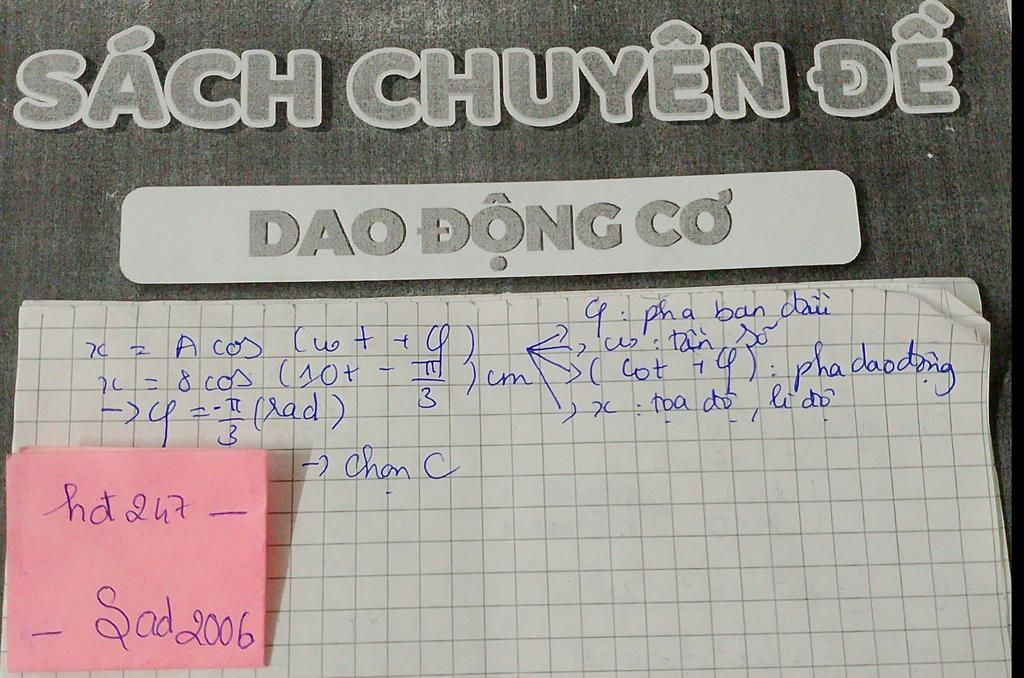 SÁCH CHUYÊN ĐỀ
DAO ĐỘNG CƠ
x = A cos (ωt + φ)
x = 8 cos (10t - π/3) cm
→ φ = -π/3 (rad)
→ Chọn C
φ : pha ban đầu
ω : tần số
(ωt + φ) : pha dao động
x : tọa độ, li độ
hđ247 —
— Sad2006